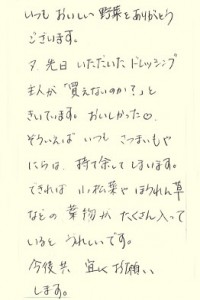 いつも おいしい 野菜を ありがとう
ございます。
夕、先日 いただいた ドレッシング
主人が 「買えないのか？」と
きいています。おいしかった♡.
そういえば いつも さつまいもや
にらは、持て余して しまいます。
できれば 小松菜や ほうれん草
などの 葉物が たくさん入って
いると うれしいです。
今後共 宜しく お願い
します。